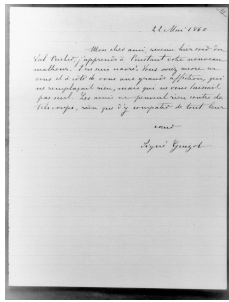 22 Mai 1860
Mon cher ami, revenu hier soir du
Val Richer, j'apprends à l'instant votre nouveau
malheur. J'en suis navré. Vous aviez encore
vous et à côté de vous une grande affection, qui
ne remplaçait rien, mais qui ne vous laissait
pas seul. Les amis ne peuvent rien contre de
tels coups, rien que d'y compatir de tout leur
cœur
Signé Guizot